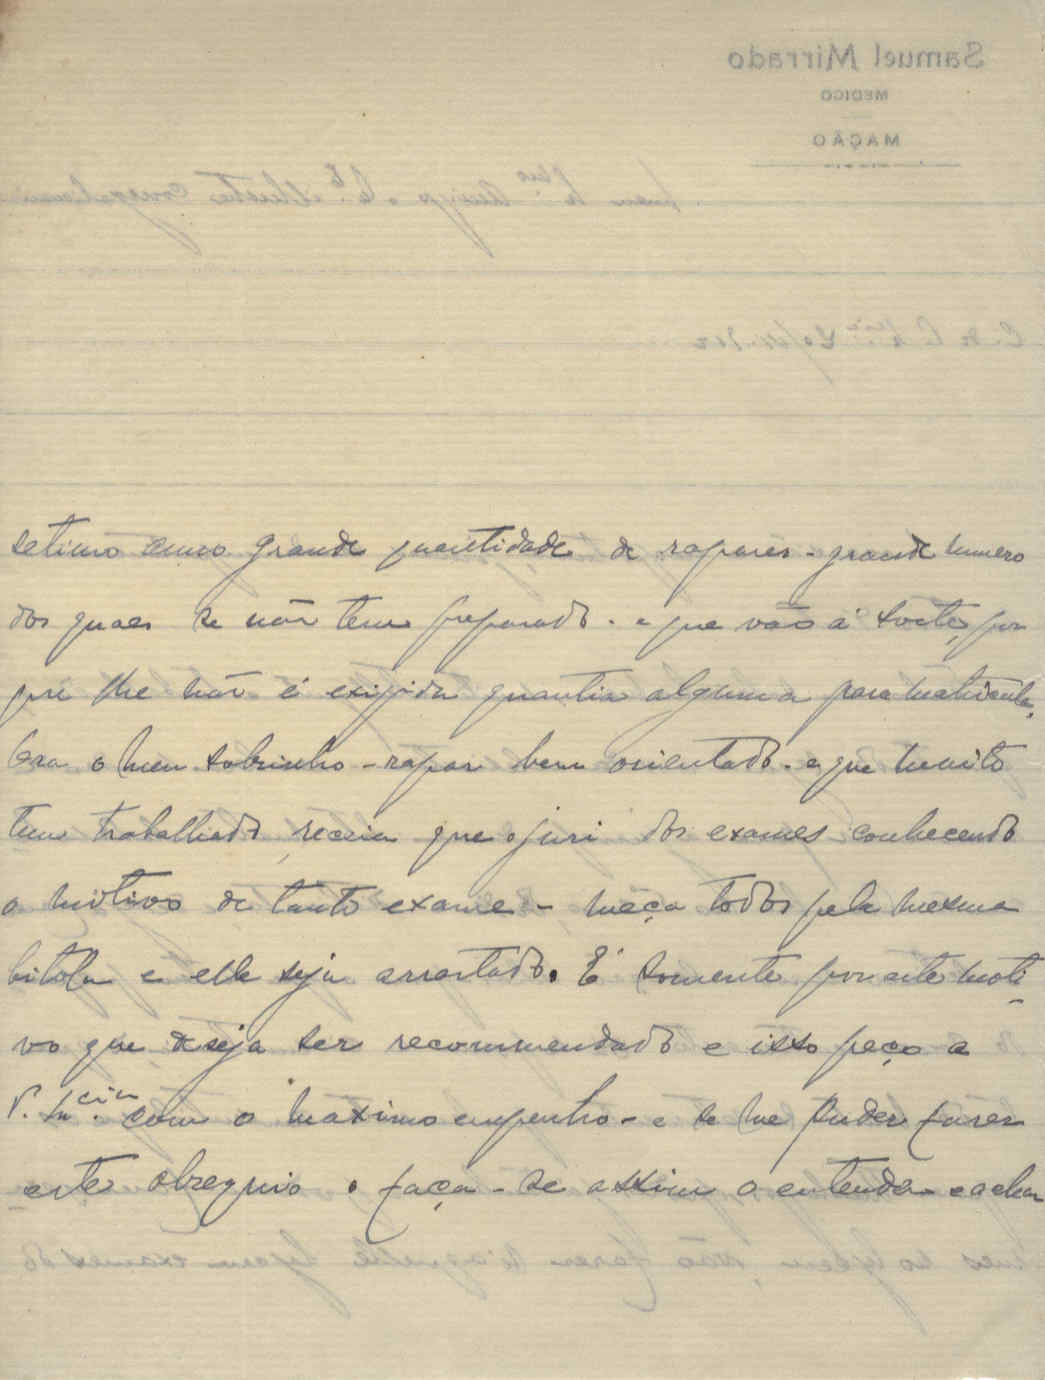 setimo anno grande quantidade de rapazes - grande numero
dos quaes se não tem preparado - e que vão á sorte, por
que lhe não é exigida quantia alguma para matricula.
Ora o meu sobrinho - rapaz bem orientado - e que muito
tem trabalhado, receia que o juri dos exames conhecendo
o motivo de tanto exame - meça todos pela mesma
bitola e elle seja arrastado. É somente por este moti-
vo que deseja ser recommendado e isso peço a
V. Ex.cia com o maximo empenho - e se me puder fazer
este obsequio o faça - se assim o entender e achar
Samuel Mirrado
MEDICO
MAÇÃO